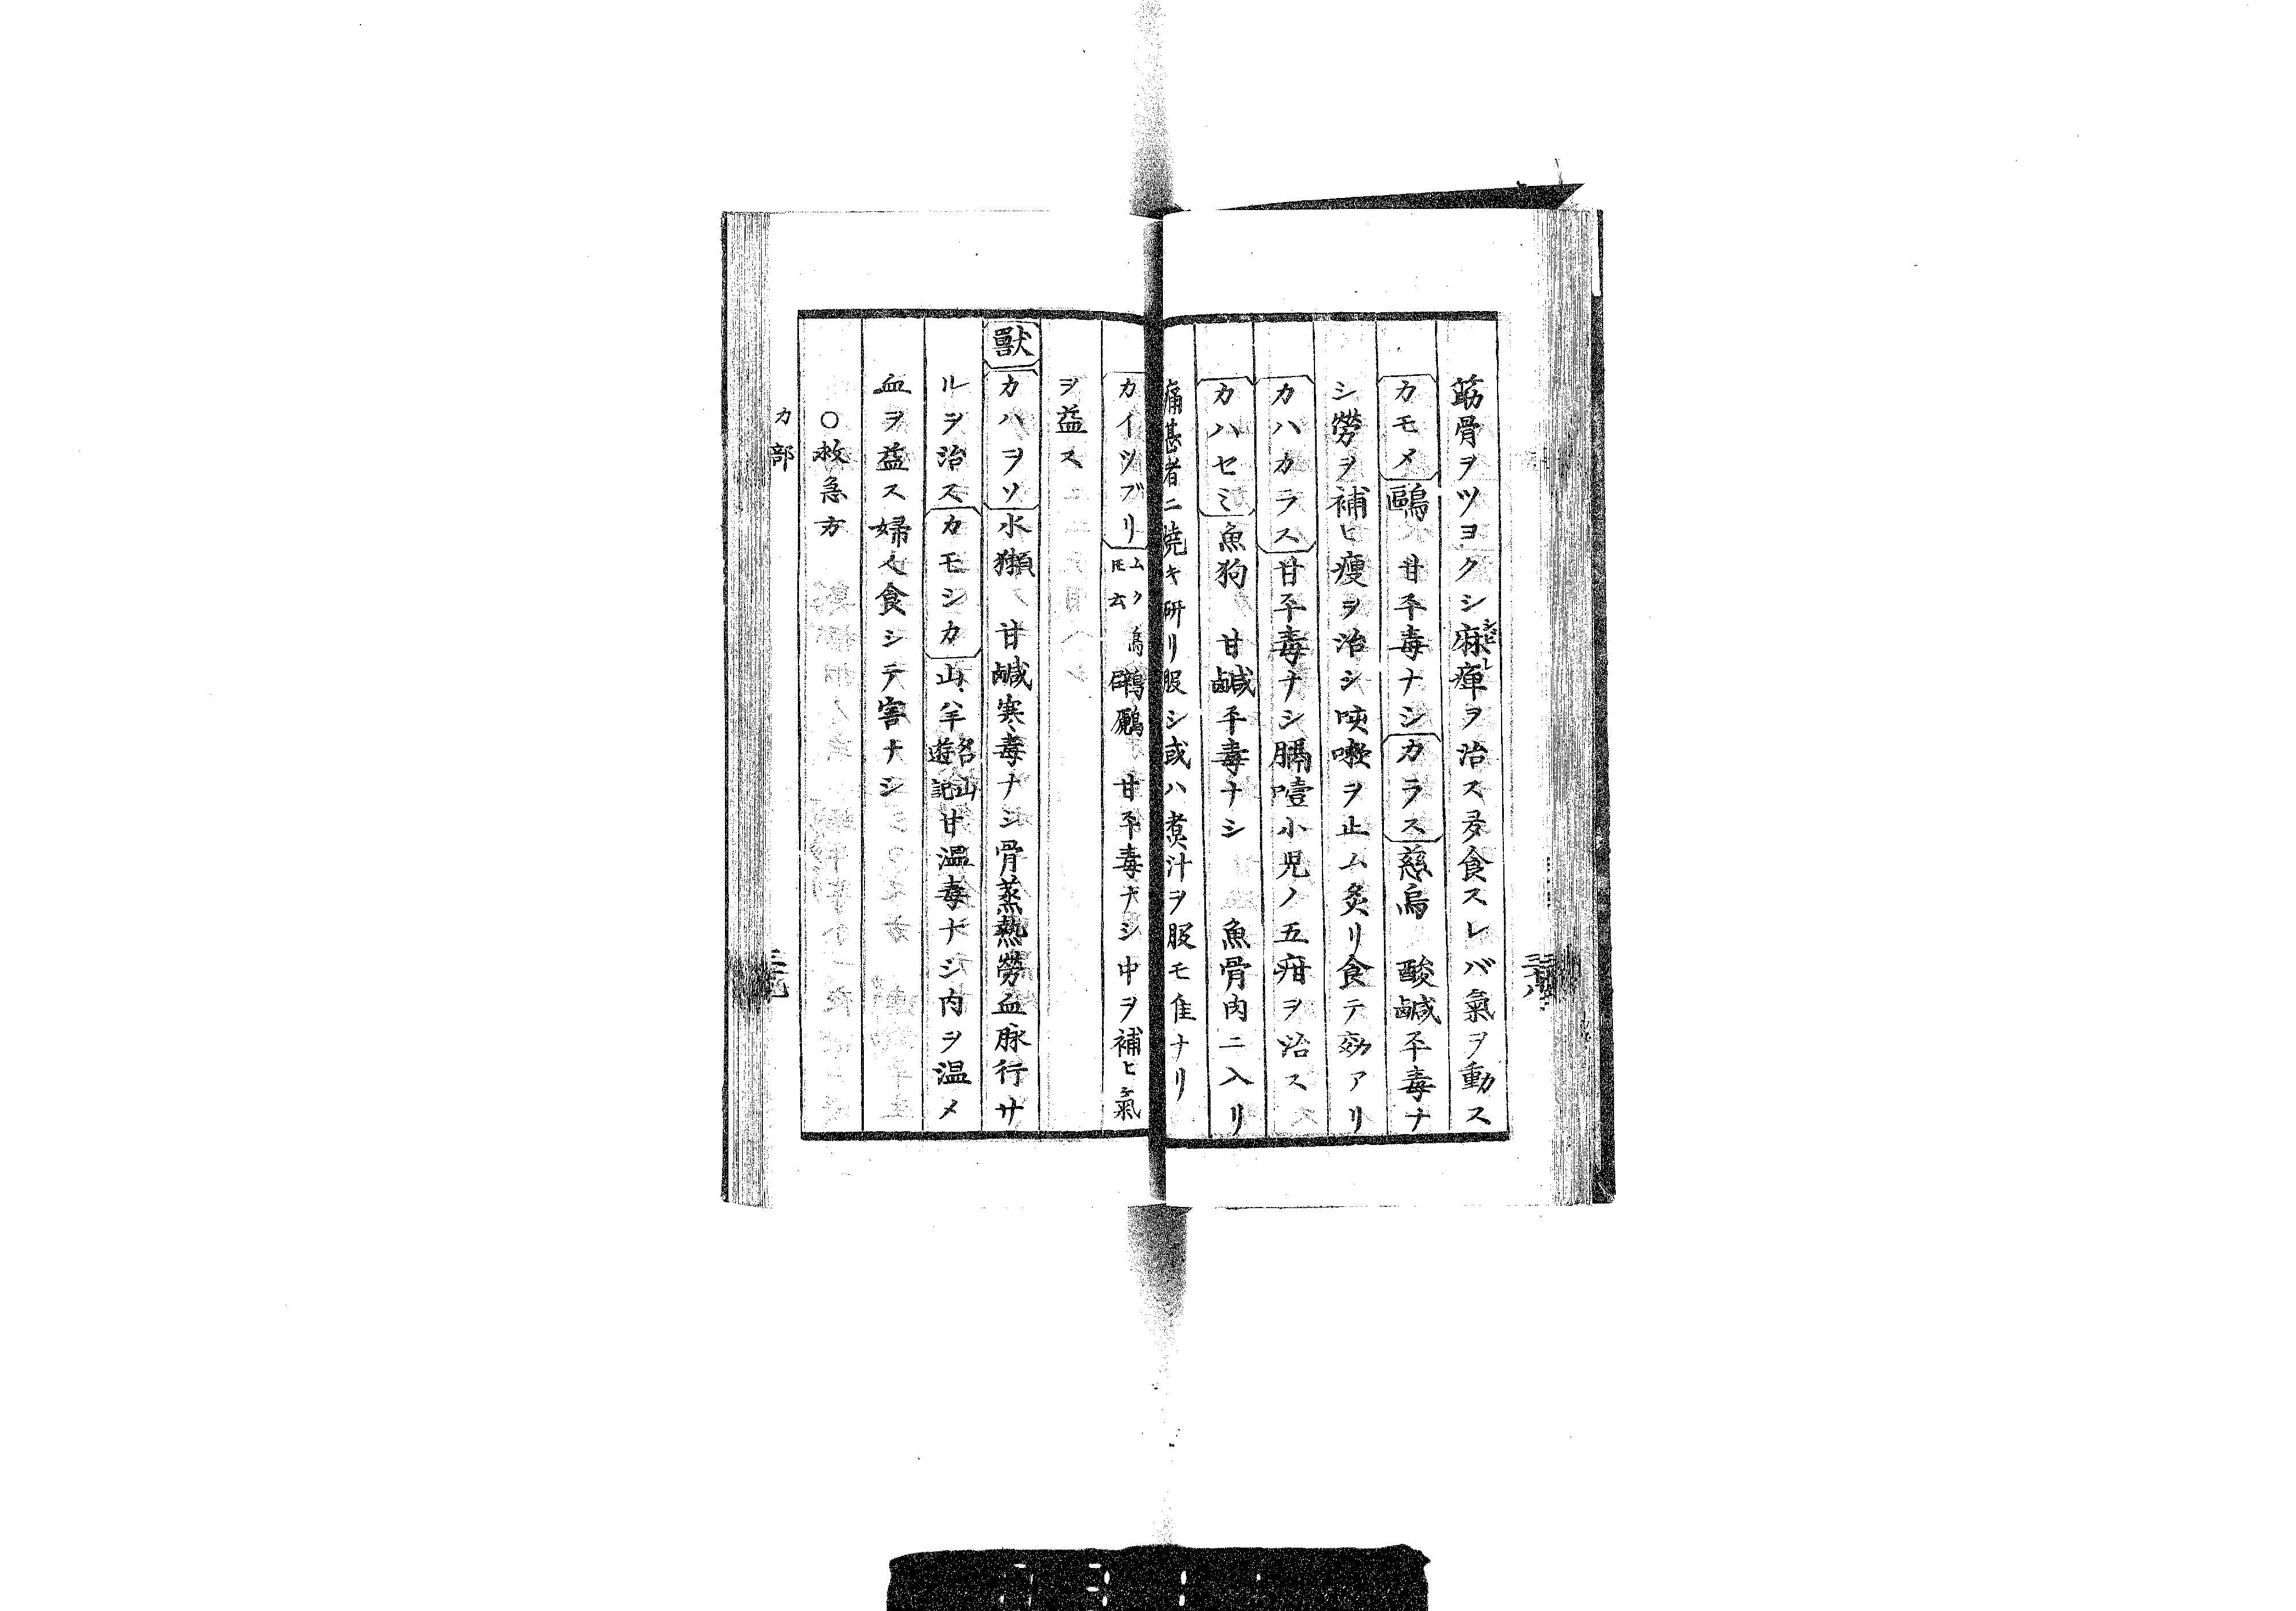 筋骨ヲツヨクシ麻痺ヲ治ス多食スレバ氣ヲ動ス
カモメ 鷗 甘平毒ナシ カラス 慈烏 酸鹹平毒ナ
シ勞ヲ補ヒ瘦ヲ治シ咳嗽ヲ止ム炙リ食テ効アリ
カハカラス 甘平毒ナシ膈噎小児ノ五疳ヲ治ス
カハセミ 魚狗 甘鹹平毒ナシ 魚骨肉ニ入リ
痛甚者ニ燒キ研リ服シ或ハ煮汁ヲ服モ隹ナリ
三十八
カイツブリ ムク鳥 圧云 鸊鷉 甘平毒ナシ中ヲ補ヒ氣
ヲ益ス
獸 カハヲソ 水獺 甘鹹寒毒ナシ骨蒸熱勞血脉行サ
ルヲ治ス カモシカ 山羊 名山遊記 甘溫毒ナシ内ヲ温メ
血ヲ益ス婦人食シテ害ナシ
○救急方
カ部